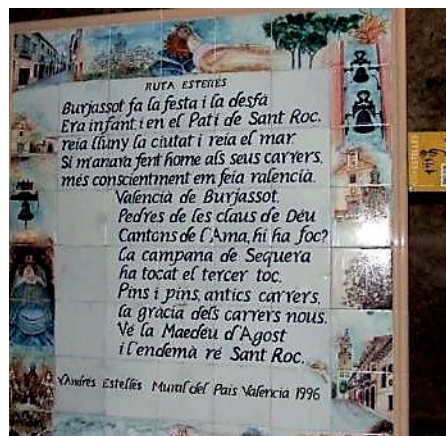 RUTA ESTELLÉS
Burjassot fa la festa i la desfà
Era infant i en el Pati de Sant Roc,
reia lluny la ciutat i reia el mar
Si m'anara fent home als seus carrers,
més conscientment em feia ralencià.
Valencià de Burjassot,
Pedres de les claus de Déu
Cantons de l'Ama, hi ha foc?
La campana de Sequera
ha tocat el tercer toc.
Pins i pins, antics carrers,
la gràcia dels carrers nous.
Ve la Maedeu d'Agost
i l'endemà ré Sant Roc.
V.Andrés Estellés Mural del País Valencià 1996
ESTELLÉS